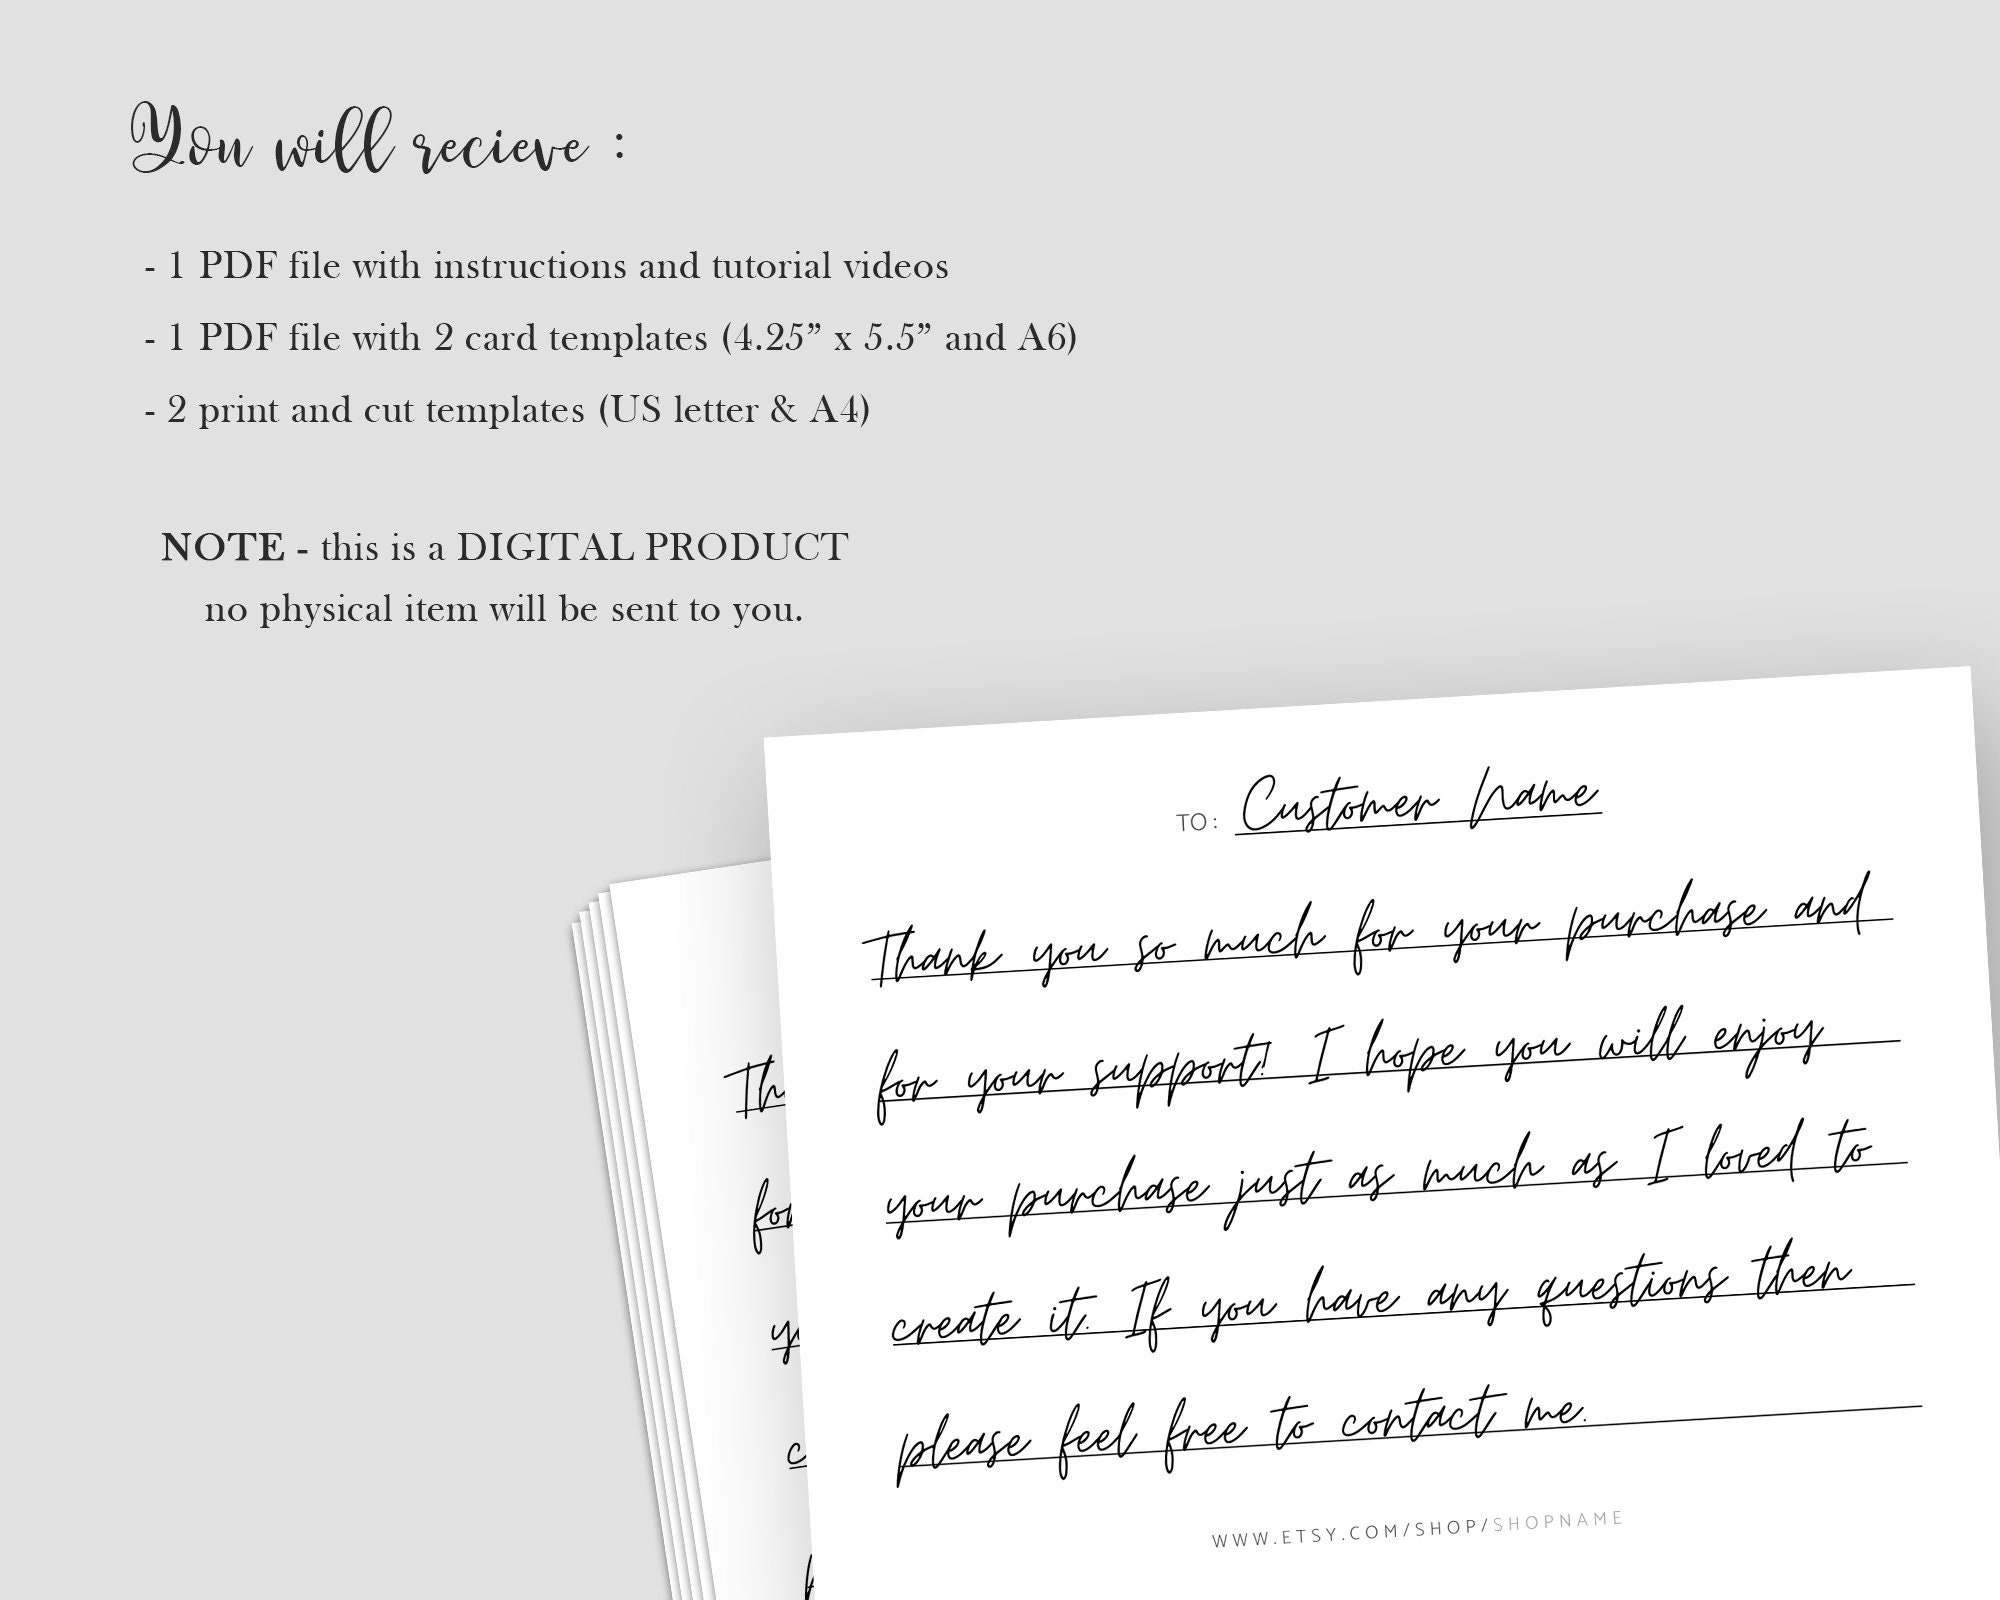 You will recieve :
- 1 PDF file with instructions and tutorial videos
- 1 PDF file with 2 card templates (4.25” x 5.5” and A6)
- 2 print and cut templates (US letter & A4)
NOTE - this is a DIGITAL PRODUCT
no physical item will be sent to you.
TO: Customer Name
Thank you so much for your purchase and
for your support! I hope you will enjoy
your purchase just as much as I loved to
create it. If you have any questions then
please feel free to contact me.
WWW.ETSY.COM/SHOP/SHOPNAME
Th
for
yo
c